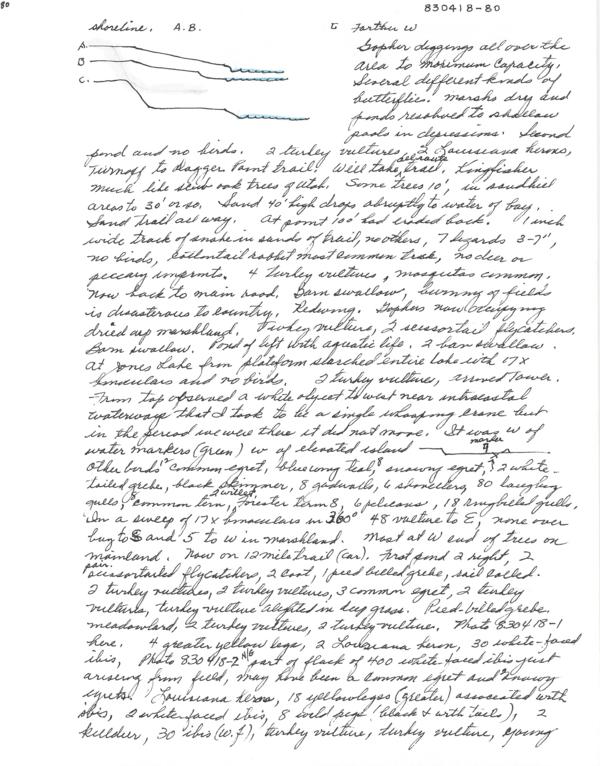 80
830418-80
shoreline. A.B.
Farther W
A.
B
C.
Gopher diggings all over the
area to maximum capacity.
Several different kinds of
butterflies. Marsh dry and
ponds resolved to shallow
pools in depressions. Second
pond and no birds. 2 turkey vultures, 2 Louisiana herons,
Turnoff to Dagger Point trail. Will take trail. Kingfisher
much like scrub oak trees of Utah. Some trees 10', in sandhill
areas to 30' or so. Sand 40' high drops abruptly to water of bay.
Sand trail all way. At point 100' had eroded back. 1 inch
wide track of snake in sands of trail, no others, 7 lizards 3-7",
no birds, cottontail rabbit most common track, no deer or
peccary imprints. 4 turkey vultures, mosquitos common.
Now back to main road. Barn swallow, burning of fields
is disasterous to country. Redwing. Gophers now occupying
dried up marshland. Turkey vulture, 2 scissortail flycatchers.
Barn swallow. Pond of left with aquatic life. 2 barn swallow.
At Jones Lake from plateform searched entire lake with 17x
binoculars and no birds. 2 turkey vultures, arrived Tower.
From top observed a white object to west near intracoastal
waterway that I took to be a single whooping crane but
in the period we were there it did not move. It was W of
marker
water markers (green) W of elevated island
Other birds 2 common egret, blue wing teal, 8 snowy egret, 2 white-
tailed grebe, black skimmer, 8 gadwalls, 6 shovelers, 80 laughing
2 willet,
gulls, 8 common tern, Forster tern 8, 6 pelicans, 18 ringbilled gulls.
In a sweep of 17x binoculars in 360° 48 vulture to E, none over
bay to S and 5 to W in marshland. Most at W end of trees on
mainland. Now on 12 mile trail (car). First pond 2 right, 2
pair.
scissortailed flycatchers, 2 coot, 1 pied billed grebe, sail called.
2 turkey vultures, 2 turkey vultures, 3 common egret, 2 turkey
vultures, turkey vulture alighted in dry grass. Pied-billed grebe.
meadowlark, 2 turkey vultures, 2 turkey vulture. Photo 830418-1
here. 4 greater yellow legs, 2 Louisiana heron, 30 white-faced
ibis, Photo 830418-2 part of flock of 400 white-faced ibis just
arising from field, may have been a common egret and 2 snowy
egrets. Louisiana heron, 18 yellowlegs (greater) associated with
ibis, 2 white-faced ibis, 8 wild pigs (black & with tails), 2
killdeer, 30 ibis (w.f), turkey vulture, turkey vulture, young